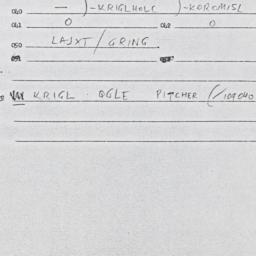 040 — )-KRIGLHOLC )-KOROMISL
041 0 042 0
050 LAJXT/GRING
051
KRIGL QGLE PITCHER (/109040